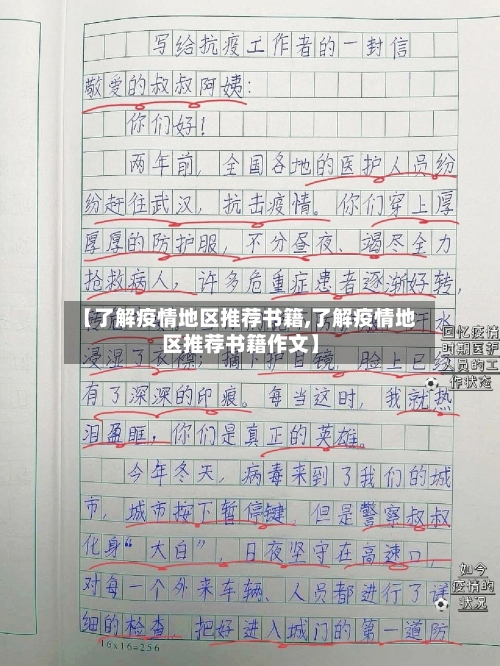 写给抗疫工作者的一封信
敬爱的叔叔阿姨：
你们好！
两年前，全国各地的医护人员纷
纷赶往武汉，抗击疫情。你们穿上厚
厚厚的防护服，不分昼夜、竭尽全力
抢救病人，许多危重症患者逐渐好转，
【了解疫情地区推荐书籍,了解疫情地
区推荐书籍作文】
水
浸湿了衣襟，摘下护目镜，脸上已经
有了深深的印痕。每当这时，我就热
泪盈眶，你们是真正的英雄。
回忆疫情
时期医护
人员的工
作状态
今年冬天，病毒来到了我们的城
市，城市按下暂停键，但是警察叔叔
化身“大白”，日夜坚守在高速口，
对每一个外来车辆、人员都进行了详
细的检查，把好进入城门的第一道防
如今
疫情的
状况
16×16=256